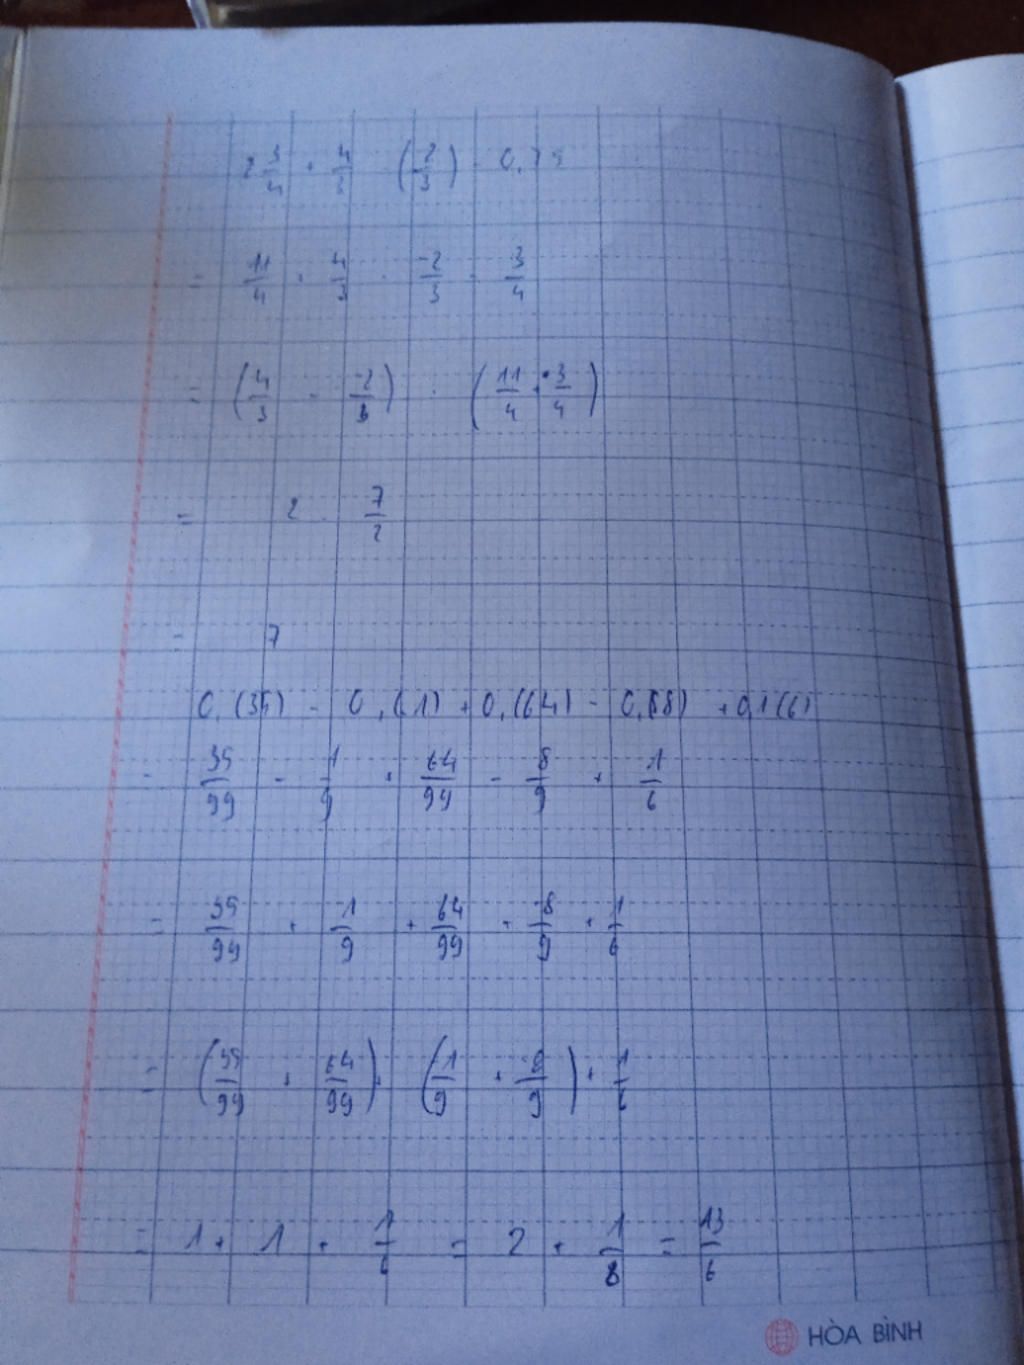 2 3/4 + 4/3 - (-2/3) - 0,75
= 11/4 + 4/3 - -2/3 - 3/4
= (4/3 - -2/3) . (11/4 + 3/4)
= 2 . 7/2
= 7
0,(35) - 0,(1) + 0,(64) - 0,(8) + 0,1(6)
= 35/99 - 1/9 + 64/99 - 8/9 + 1/6
= 35/99 + 1/9 + 64/99 + -8/9 + 1/6
= (35/99 + 64/99) + (1/9 + -8/9) + 1/6
= 1 + 1 + 1/6 = 2 + 1/8 = 13/6
HÒA BÌNH